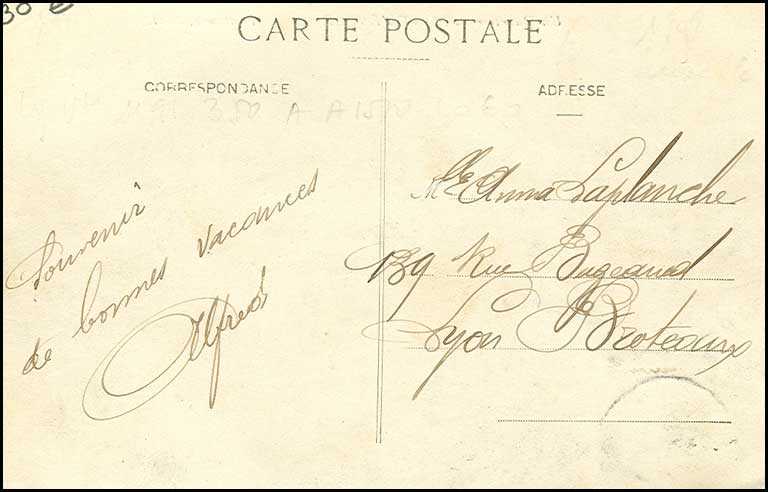 30 €
CARTE POSTALE
CORRESPONDANCE
ADRESSE
Souvenir
de bonnes vacances
Alfred
Mlle Anna Laplanche
139 Rue Bugeaud
Lyon Broteaux